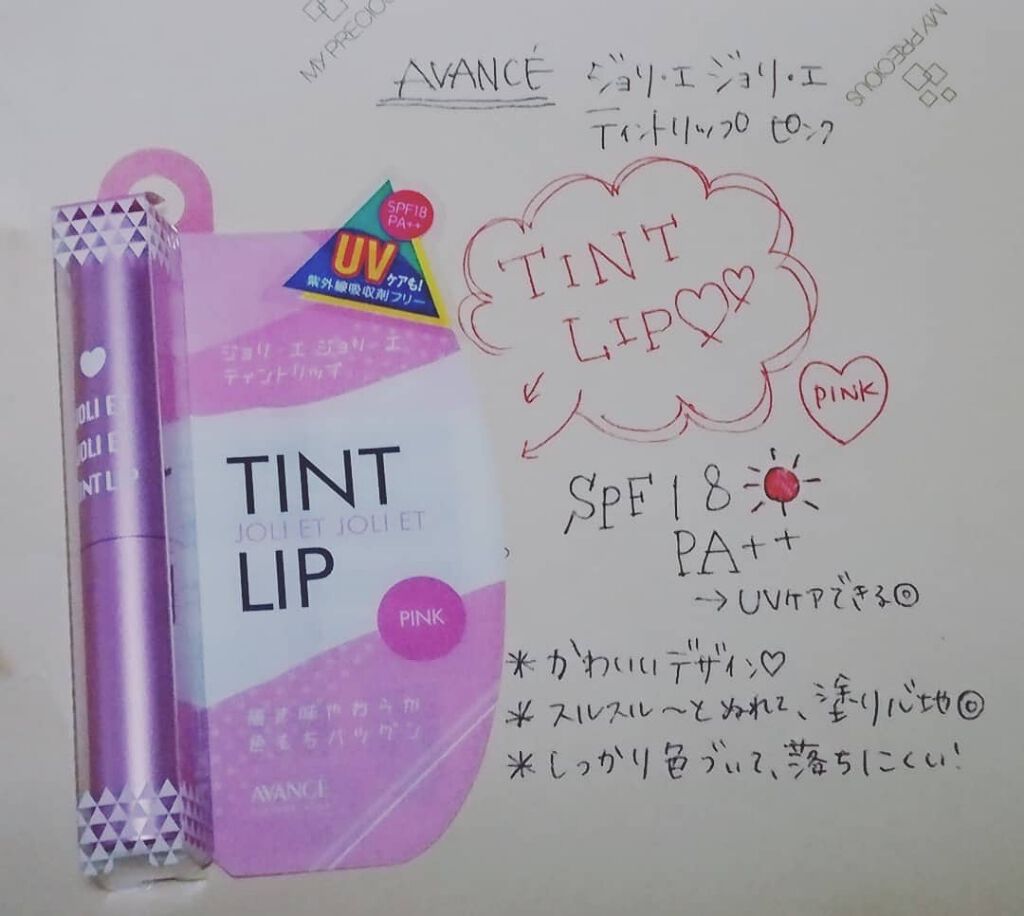 MY PRECIOUS
MY PRECIOUS
AVANCÉ ジョリ・エ ジョリ・エ
ティントリップ ピンク
TINT
LIP♡♡
PINK
SPF18
PA++
→UVケアできる◎
＊かわいいデザイン♡
＊スルスル〜とぬれて、塗り心地◎
＊しっかり色づいて、落ちにくい!
SPF18
PA++
UV
ケアも!
紫外線吸収剤フリー
ジョリ・エ ジョリ・エ
ティントリップ
TINT
JOLI ET JOLI ET
LIP
PINK
色もちバツグン
AVANCÉ
JOLI E
JOLI E
TINT LIP